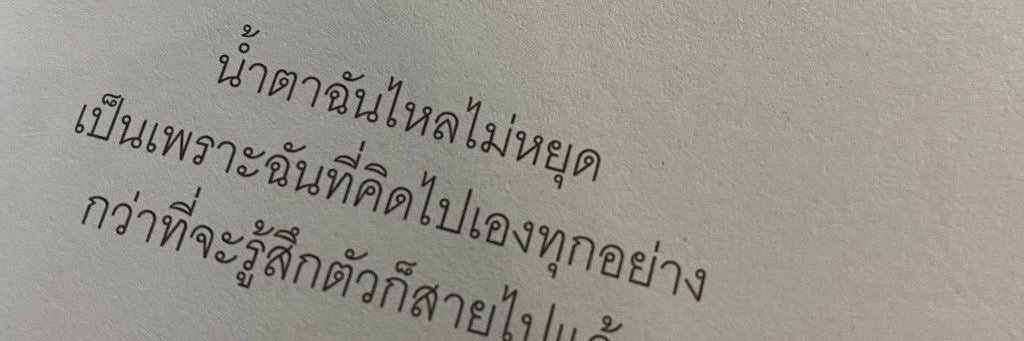 น้ำตาฉันไหลไม่หยุด
เป็นเพราะฉันที่คิดไปเองทุกอย่าง
กว่าที่จะรู้สึกตัวก็สายไป